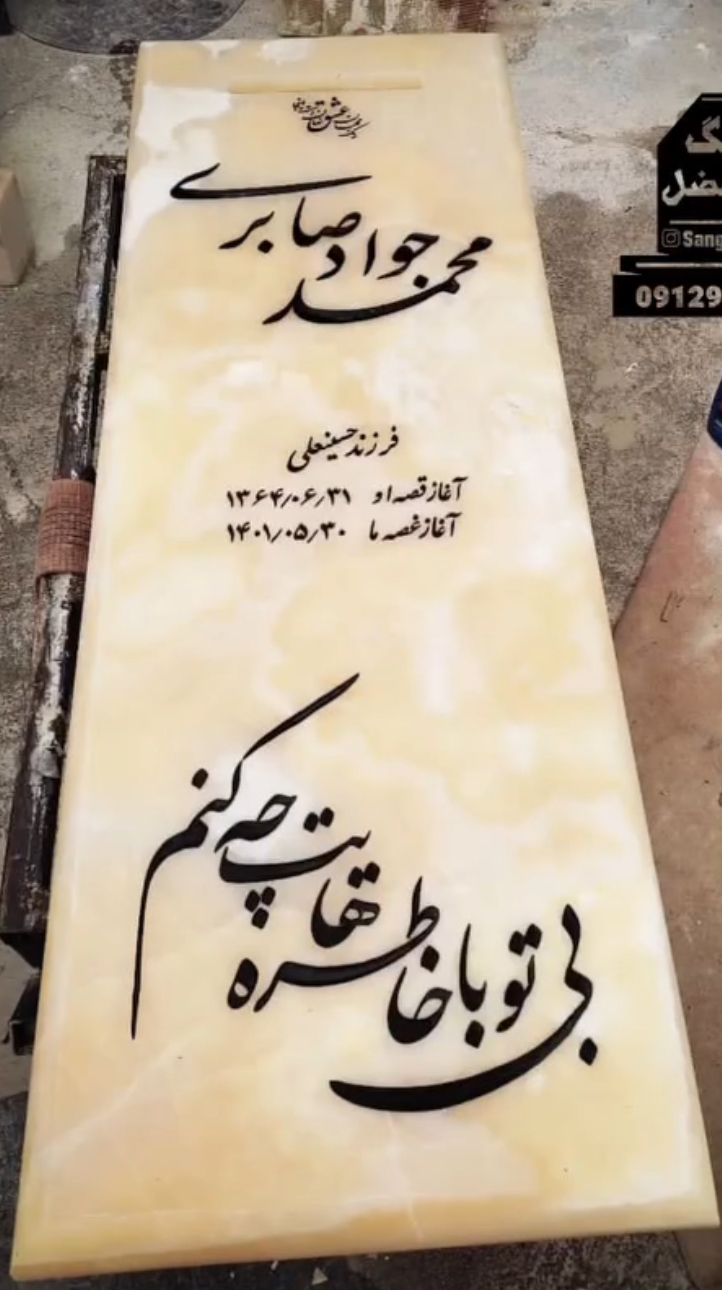 محمد جواد صابری
فرزند حسینعلی
آغاز قصه او ۱۳۶۴/۰۶/۳۱
آغاز غصه ما ۱۴۰۱/۰۵/۳۰
بی تو با خاطره هایت چه کنم
Sang
09129